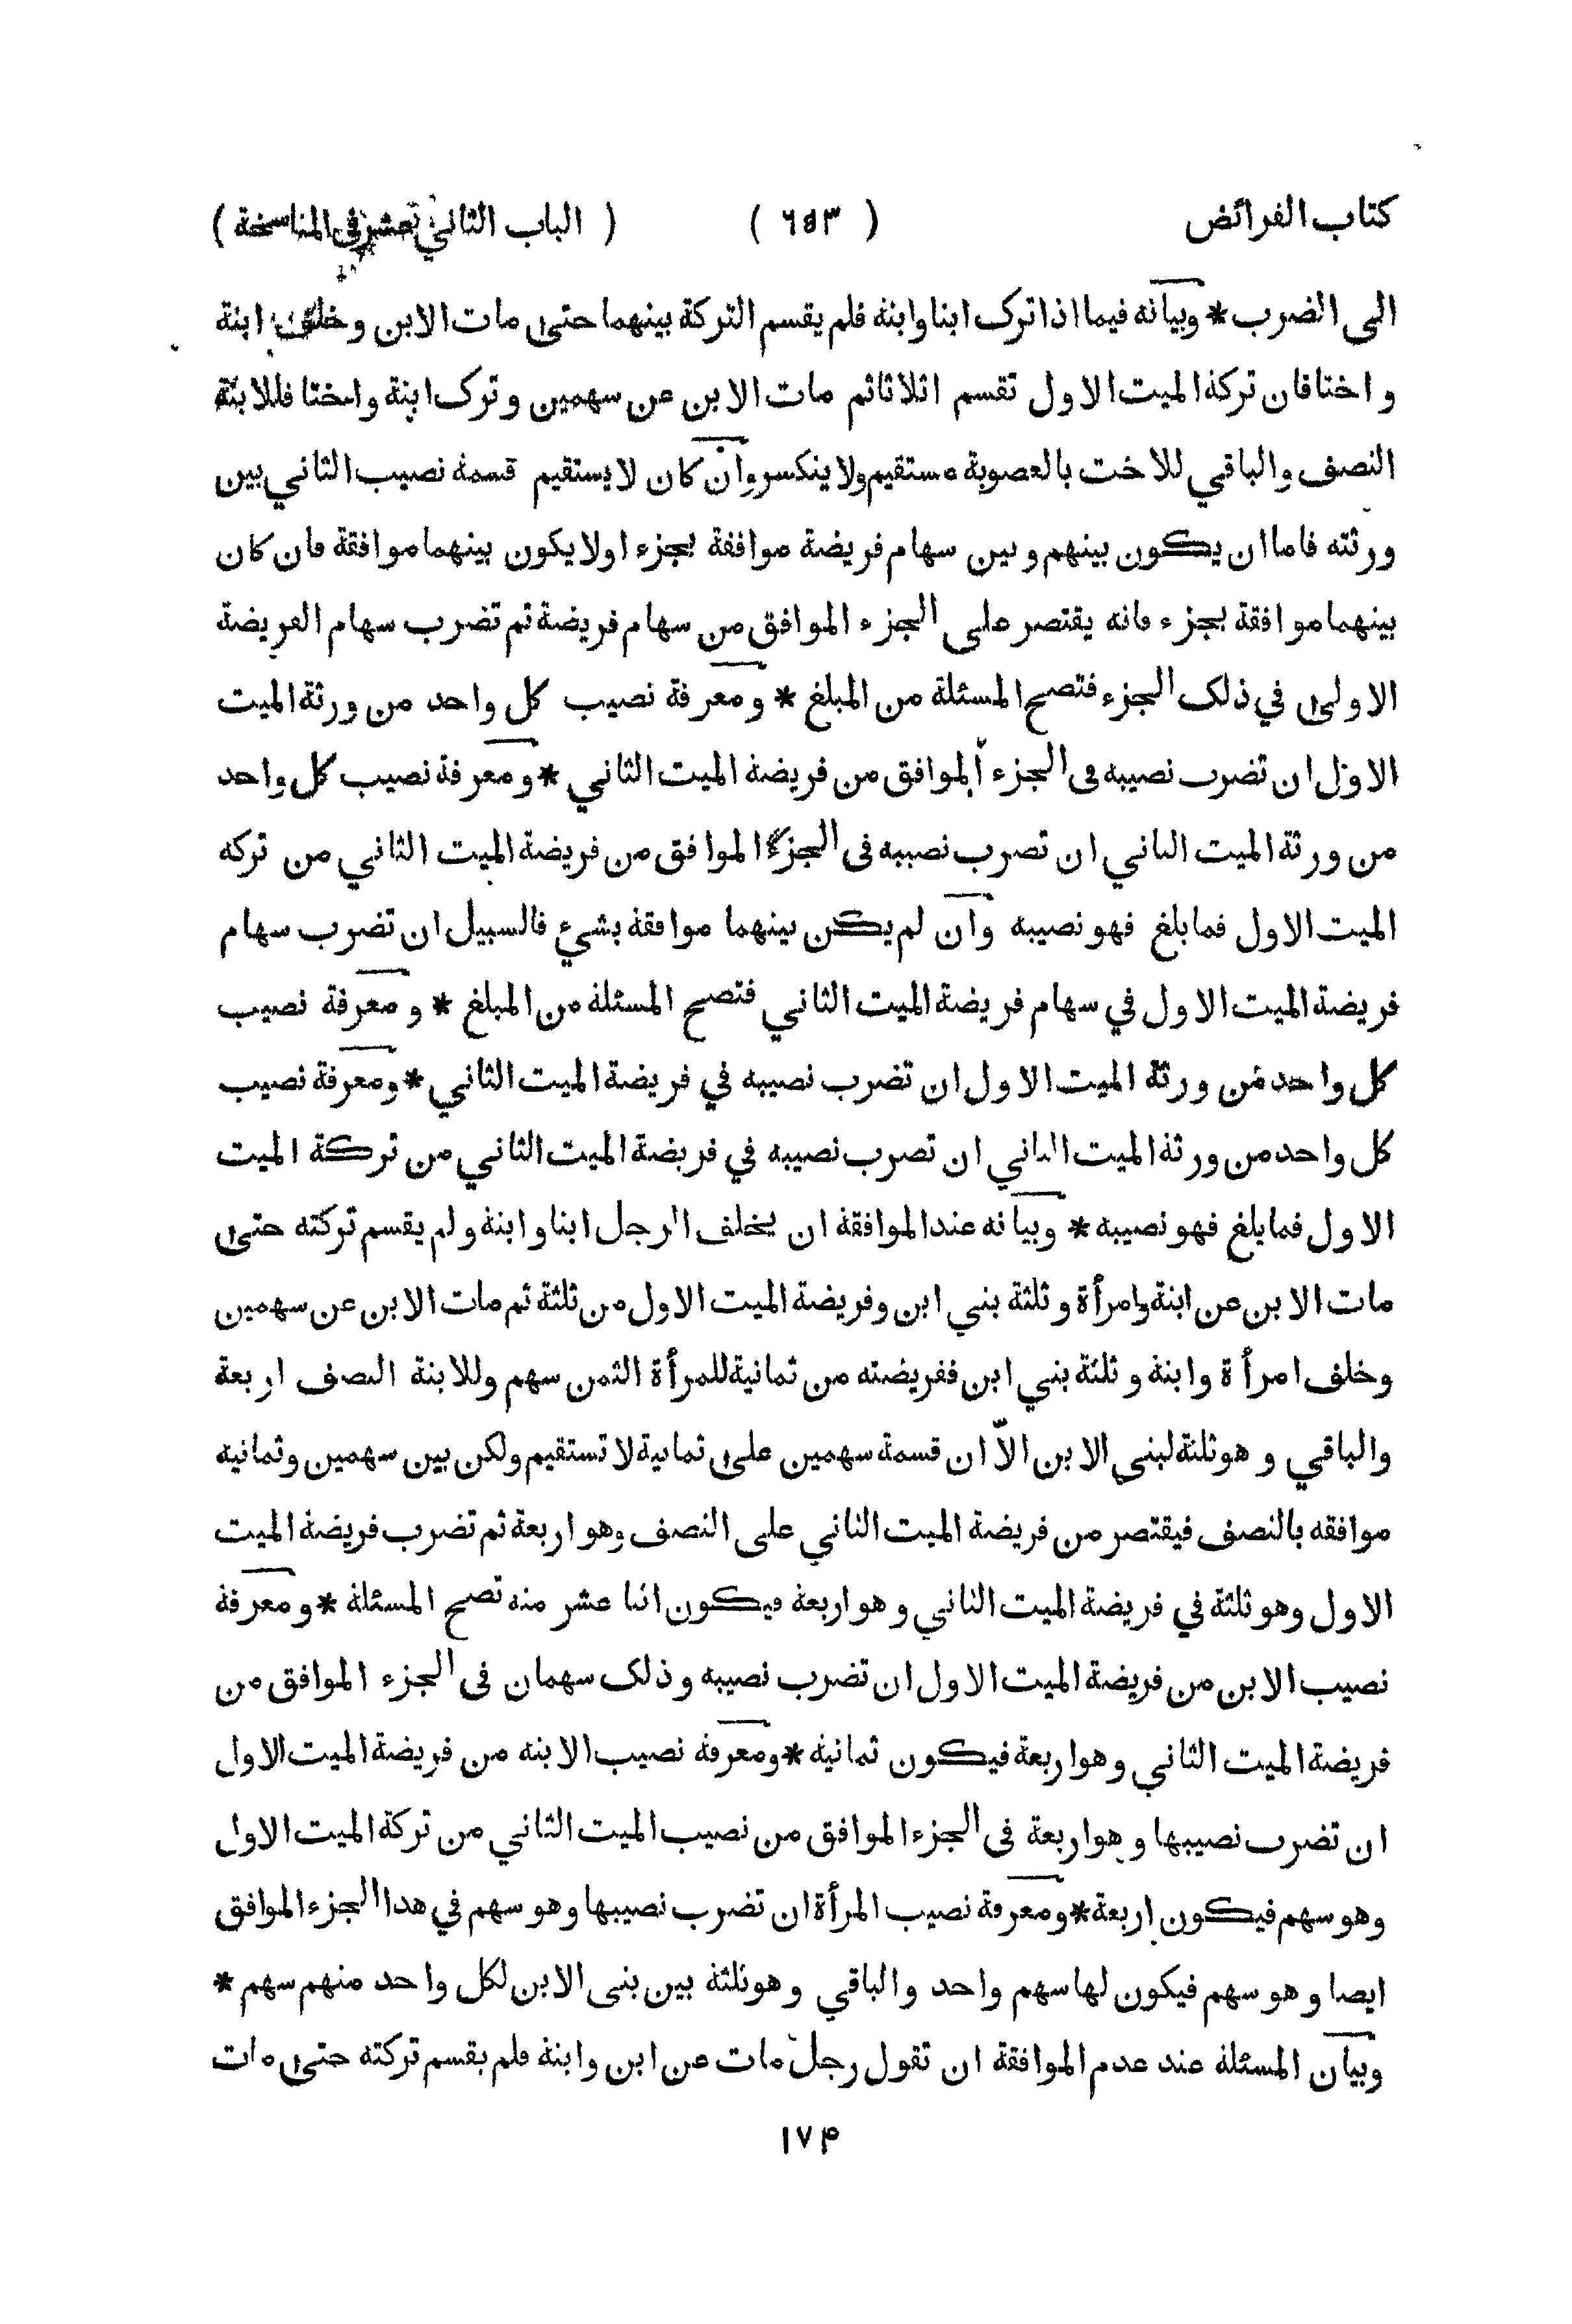 كتاب الفرائض ( ٦٥٣ ) ( الباب الثاني عشر في المناسخة )
الى الضرب * وبيانه فيما اذا ترك ابنا وابنة فلم يقسم التركة بينهما حتى مات الابن وخلف ابنة
و اختا فان تركة الميت الاول تقسم اثلاثا ثم مات الابن عن سهمين و ترك ابنة واختا فللابنة
النصف والباقي للاخت بالعصوبة مستقيم ولا ينكسر وان كان لا يستقيم قسمة نصيب الثاني بين
ورثته فاما ان يكون بينهم وبين سهام فريضة موافقة بجزء اولا يكون بينهما موافقة فان كان
بينهما موافقة بجزء فانه يقتصر على الجزء الموافق من سهام فريضة ثم تضرب سهام الفريضة
الاولى في ذلك الجزء فتصح المسئلة من المبلغ * ومعرفة نصيب كل واحد من ورثة الميت
الاول ان تضرب نصيبه في الجزء الموافق من فريضة الميت الثاني * ومعرفة نصيب كل واحد
من ورثة الميت الثاني ان تضرب نصيبه في الجزء الموافق من فريضة الميت الثاني من تركه
الميت الاول فما بلغ فهو نصيبه وان لم يكن بينهما موافقة بشيء فالسبيل ان تضرب سهام
فريضة الميت الاول في سهام فريضة الميت الثاني فتصح المسئلة من المبلغ * و معرفة نصيب
كل واحد من ورثة الميت الاول ان تضرب نصيبه في فريضة الميت الثاني * ومعرفة نصيب
كل واحد من ورثة الميت الثاني ان تضرب نصيبه في فريضة الميت الثاني من تركة الميت
الاول فما بلغ فهو نصيبه * وبيانه عند الموافقة ان يخلف الرجل ابنا وابنة ولم يقسم تركته حتى
مات الابن عن ابنة وامرأة و ثلثة بني ابن وفريضة الميت الاول من ثلثة ثم مات الابن عن سهمين
وخلف امرأة وابنة و ثلثة بني ابن ففريضته من ثمانية للمرأة الثمن سهم وللابنة النصف اربعة
والباقي و هو ثلثة لبني الابن الّا ان قسمة سهمين على ثمانية لا تستقيم ولكن بين سهمين وثمانيه
موافقه بالنصف فيقتصر من فريضة الميت الثاني على النصف وهو اربعة ثم تضرب فريضة الميت
الاول وهو ثلثة في فريضة الميت الثاني و هو اربعة فيكون اثنا عشر منه تصح المسئلة * و معرفة
نصيب الابن من فريضة الميت الاول ان تضرب نصيبه وذلك سهمان في الجزء الموافق من
فريضة الميت الثاني وهو اربعة فيكون ثمانية * ومعرفة نصيب الابنه من فريضة الميت الاول
ان تضرب نصيبها و هو اربعة في الجزء الموافق من نصيب الميت الثاني من تركة الميت الاول
وهو سهم فيكون اربعة * ومعرفة نصيب المرأة ان تضرب نصيبها وهو سهم في هذا الجزء الموافق
ايضا و هو سهم فيكون لها سهم واحد والباقي وهو ثلثة بين بنى الابن لكل واحد منهم سهم *
وبيان المسئلة عند عدم الموافقة ان تقول رجل مات عن ابن وابنة فلم يقسم تركته حتى مات
١٧۴